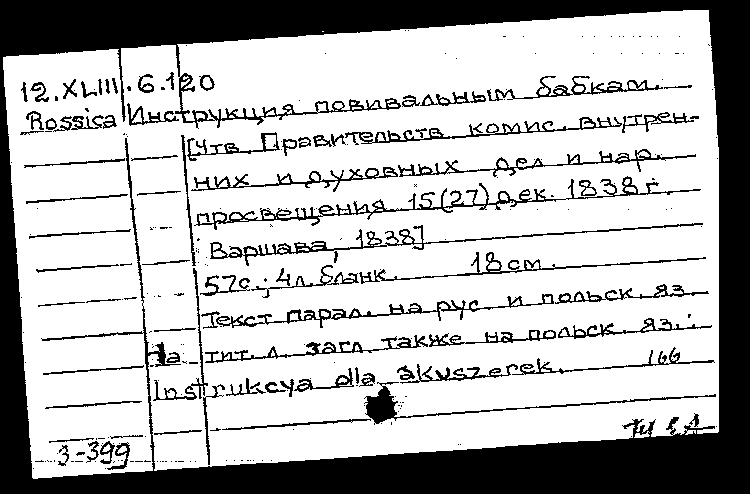 12.XLIII.6.120
Rossica Инструкция повивальным бабкам.
[Утв. Правительств. комис. внутрен-
них и духовных дел и нар.
просвещения 15(27) дек. 1838 г.
Варшава, 1838]
57с.; 4л. бланк. 18см.
Текст парал. на рус. и польск. яз.
На тит. л. загл. также на польск. яз.:
Instrukcya dla akuszerek. 166
3-399